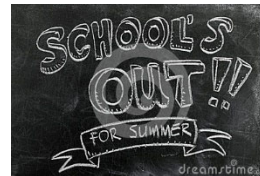 SCHOOL'S
OUT!!
FOR SUMMER
dreamstime